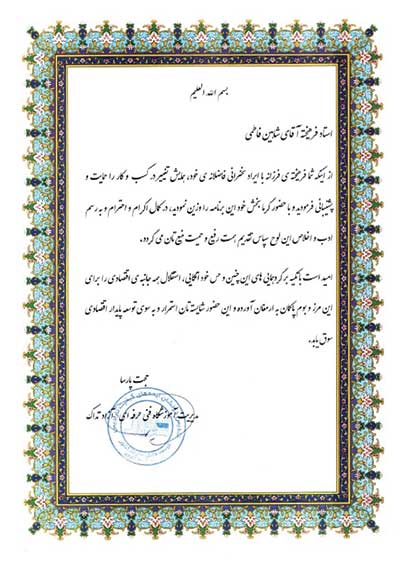 بسم الله العلیم
استاد فرهیخته آقای شاهین فاطمی
از اینکه شما فرهیخته ی فرزانه با ایراد سخنرانی فاضلانه ی خود، همایش تغییر در کسب و کار را حمایت و
پشتیبانی فرمودید و با حضور گرمابخش خود این برنامه را وزین نمودید، در کمال اکرام و احترام و به رسم
ادب و اخلاص این لوح سپاس تقدیم همت رفیع و حمیت منیع تان می گردد.
امید است با تکیه بر گردهمایی های این چنین و حس خود اتکایی، استقلال همه جانبه ی اقتصادی را برای
این مرز و بوم پاکان به ارمغان آورده و این حضور شایسته تان استمرار و به سوی توسعه پایدار اقتصادی
سوق یابد.
حجت پارسا
مدیریت آموزشگاه فنی حرفه ای آزاد تدارک